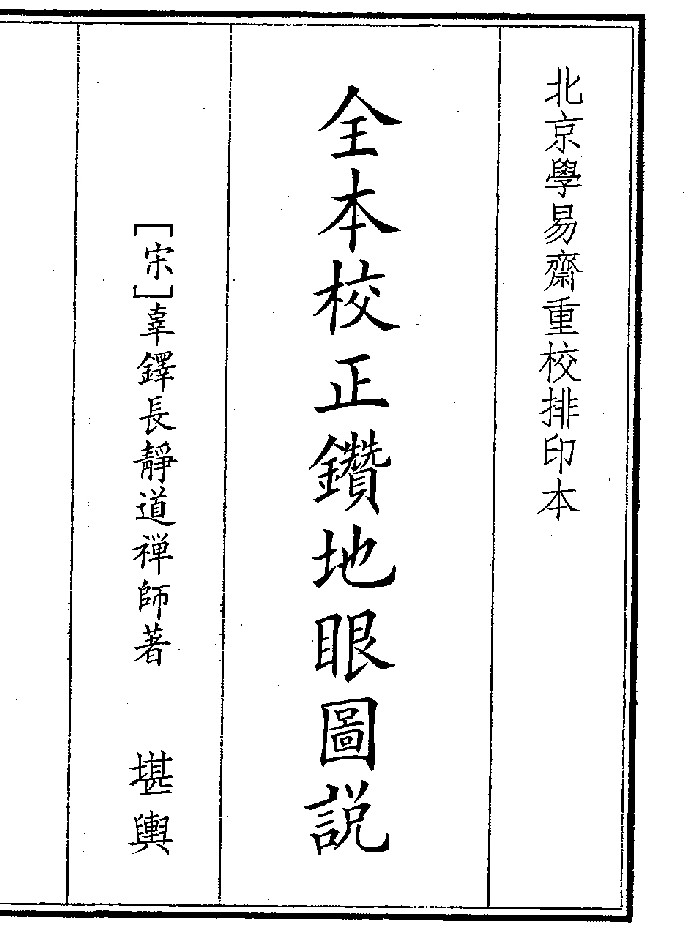 北京學易齋重校排印本
全本校正鑽地眼圖説
[宋]辜鐸長靜道禅師著 堪輿